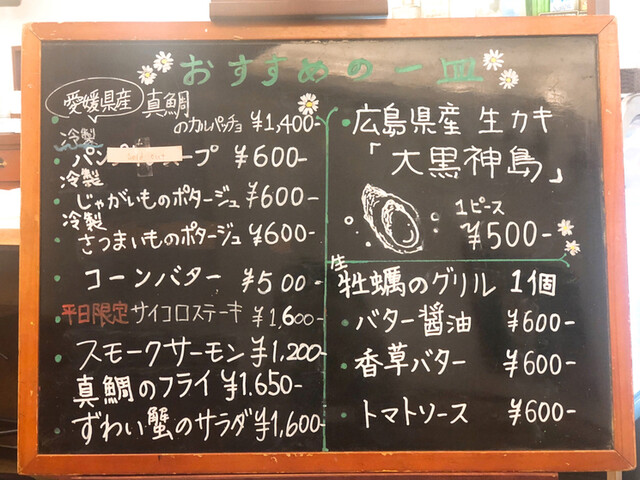 おすすめの一皿
愛媛県産 真鯛
のカルパッチョ ¥1,400-
冷製
パン スープ ¥600-
冷製
じゃがいものポタージュ ¥600-
冷製
さつまいものポタージュ ¥600-
コーンバター ¥500-
平日限定 サイコロステーキ ¥1,600-
スモークサーモン ¥1,200-
真鯛のフライ ¥1.650-
ずわい蟹のサラダ ¥1,600-
広島県産 生カキ
「大黒神島」
1ピース
¥500-
生
牡蠣のグリル 1個
バター醤油 ¥600-
香草バター ¥600-
トマトソース ¥600-